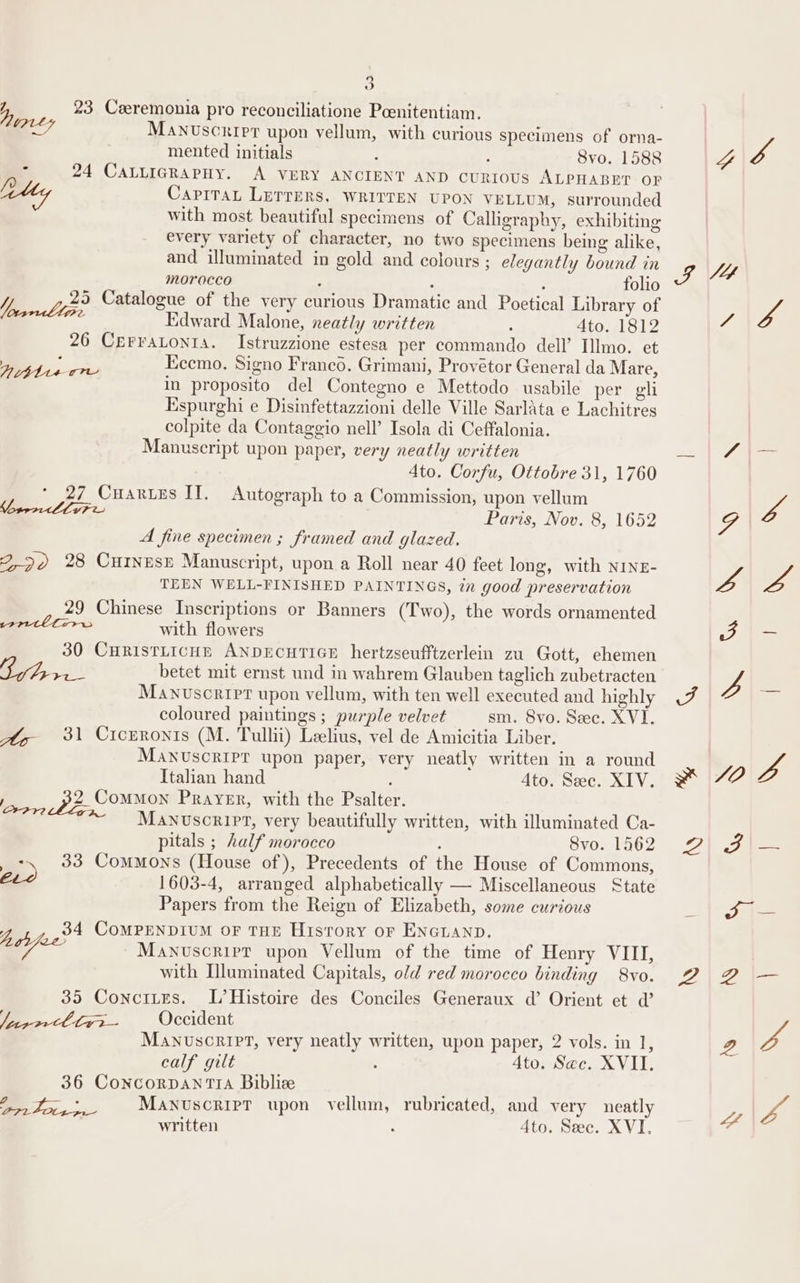 3
23 Cæremonia pro reconciliatione Pœnitentiam.
Manuscript upon vellum, with curious specimens of orna-
mented initials 8vo. 1588
24 Calligraphy. A very ancient and curious Alphabet of
Capital Letters, written upon vellum, surrounded
with most beautiful specimens of Calligraphy, exhibiting
every variety of character, no two specimens being alike,
and illuminated in gold and colours; elegantly bound in
morocco folio
25 Catalogue of the very curious Dramatic and Poetical Library of
Edward Malone, neatly written 4to. 1812
26 Ceffalonia. Istruzzione estesa per commando dell' Illmo. et
Eccmo. Signo Franco. Grimani, Provetor General da Mare,
in proposito del Contegno e Mettodo usabile per gli
Espurghi e Disinfettazzioni delle Ville Sarlàta e Lachitres
colpite da Contaggio nell' Isola di Ceffalonia.
Manuscript upon paper, very neatly written
4to. Corfu, Ottobre 31, 1760
27 Charles II. Autograph to a Commission, upon vellum
Paris, Nov. 8, 1652
A fine specimen; framed and glazed.
28 Chinese Manuscript, upon a Roll near 40 feet long, with nine-
teen well-finished paintings, in good preservation
29 Chinese Inscriptions or Banners (Two), the words ornamented
with flowers
30 Christliche Andechtige hertzseufftzerlein zu Gott, ehemen
betet mit ernst und in wahrem Glauben taglich zubetracten
Manuscript upon vellum, with ten well executed and highly
coloured paintings; purple velvet sm. 8vo. Sæc. XVI.
31 Ciceronis (M. Tullii) Lælius, vel de Amicitia Liber.
Manuscript upon paper, very neatly written in a round
Italian hand 4to. Sæc. XIV.
32 Common Prayer, with the Psalter.
Manuscript, very beautifully written, with illuminated Ca-
pitals; half morocco 8vo. 1562
33 Commons (House of), Precedents of the House of Commons,
1603-4, arranged alphabetically — Miscellaneous State
Papers from the Reign of Elizabeth, some curious
34 Compendium of the History of England.
Manuscript upon Vellum of the time of Henry VIII,
with Illuminated Capitals, old red morocco binding 8vo.
35 Conciles. L'Histoire des Conciles Generaux d' Orient et d'
Occident
Manuscript, very neatly written, upon paper, 2 vols. in 1,
calf gilt 4to. Sæc. XVII.
36 Concordantia Bibliæ
Manuscript upon vellum, rubricated, and very neatly
written 4to. Sæc. XVI.